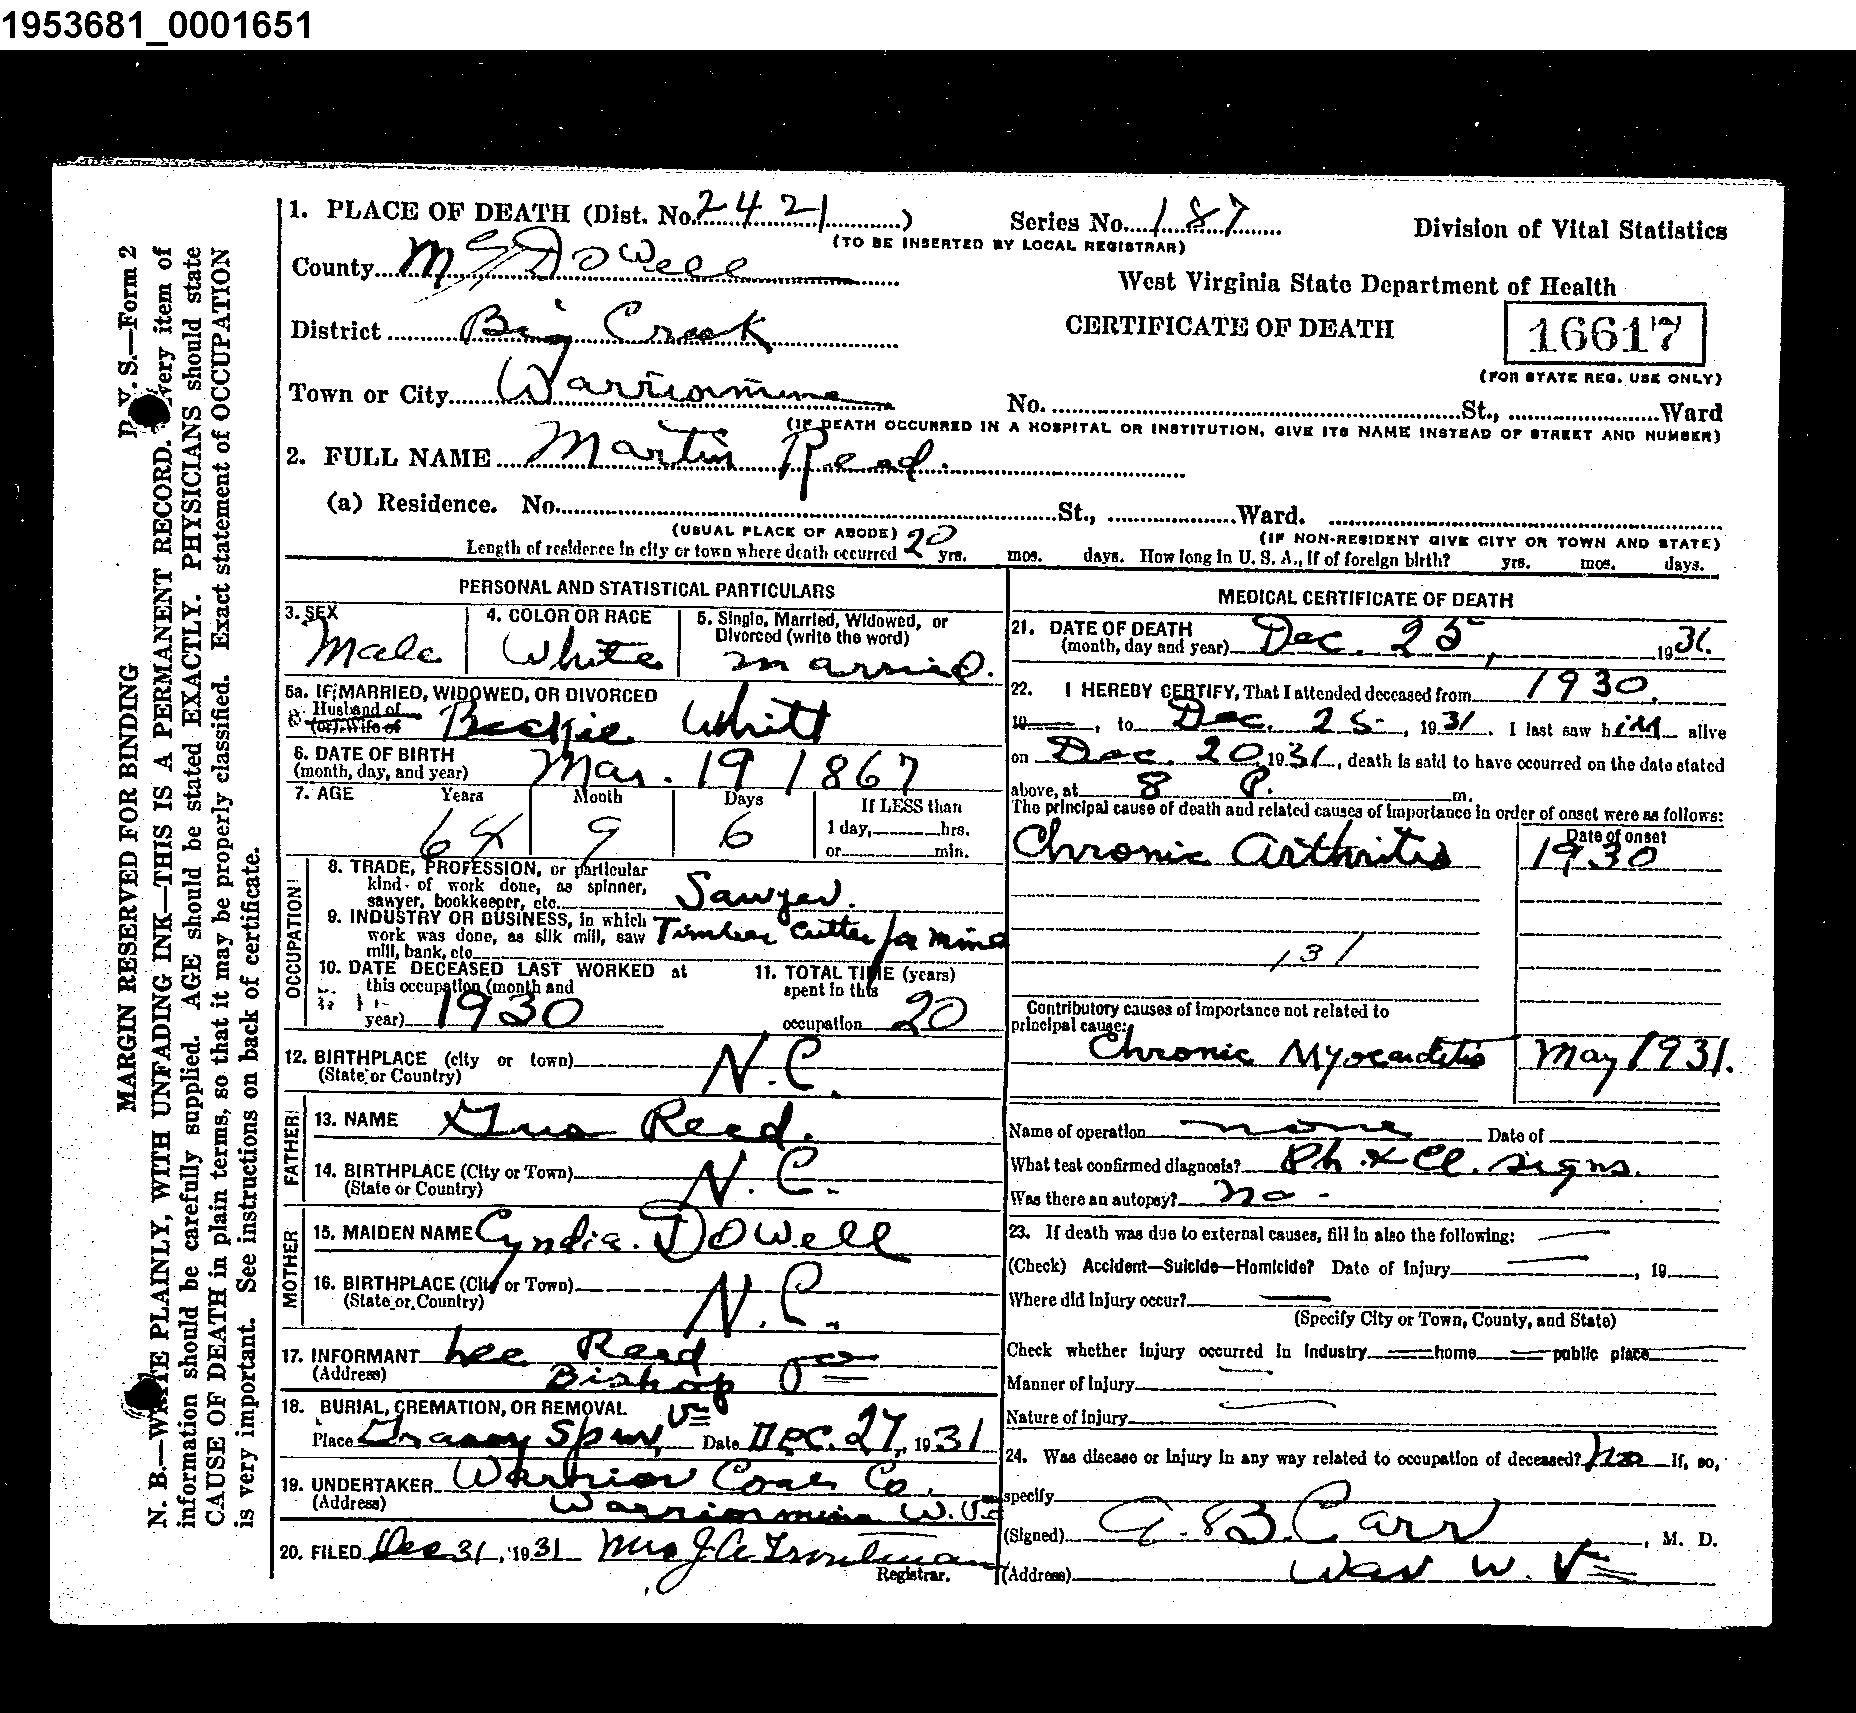 1953681_0001651
1. PLACE OF DEATH (Dist. No. 2421) Series No. 187 Division of Vital Statistics
(TO BE INSERTED BY LOCAL REGISTRAR)
County McDowell
West Virginia State Department of Health
District Big Creek CERTIFICATE OF DEATH 16617
(FOR STATE REG. USE ONLY)
Town or City Warriormine No. St., Ward
(IF DEATH OCCURRED IN A HOSPITAL OR INSTITUTION, GIVE ITS NAME INSTEAD OF STREET AND NUMBER)
2. FULL NAME Martin Reed.
(a) Residence. No. St., Ward.
(USUAL PLACE OF ABODE) (IF NON-RESIDENT GIVE CITY OR TOWN AND STATE)
Length of residence in city or town where death occurred 20 yrs. mos. days. How long in U. S. A., if of foreign birth? yrs. mos. days.
PERSONAL AND STATISTICAL PARTICULARS
3. SEX 4. COLOR OR RACE 5. Single, Married, Widowed, or
Divorced (write the word)
Male White married.
5a. IF MARRIED, WIDOWED, OR DIVORCED
Husband of
(or) Wife of Beckie Whitt
6. DATE OF BIRTH
(month, day, and year) Mar. 19 1867
7. AGE Years Month Days If LESS than
64 9 6 1 day, hrs.
or min.
OCCUPATION
8. TRADE, PROFESSION, or particular
kind of work done, as spinner,
sawyer, bookkeeper, etc. Sawyer.
9. INDUSTRY OR BUSINESS, in which
work was done, as silk mill, saw
mill, bank, etc. Timber cutter for mine
10. DATE DECEASED LAST WORKED at
this occupation (month and
year) 1930
11. TOTAL TIME (years)
spent in this
occupation 20
12. BIRTHPLACE (city or town)
(State or Country) N.C.
FATHER
13. NAME Gus Reed.
14. BIRTHPLACE (City or Town)
(State or Country) N.C.
MOTHER
15. MAIDEN NAME Cyndia. DOwell
16. BIRTHPLACE (City or Town)
(State or Country) N.C.
17. INFORMANT Lee Reed
(Address) Bishop Va
18. BURIAL, CREMATION, OR REMOVAL
Place Grassy Spur, Va Date Dec. 27, 1931
19. UNDERTAKER Warrior Coal Co.
(Address) Warriormine W. Va
20. FILED Dec 31, 1931 Mrs J. A. Troutman
Registrar.
MEDICAL CERTIFICATE OF DEATH
21. DATE OF DEATH
(month, day and year) Dec. 25, 1931.
22. I HEREBY CERTIFY, That I attended deceased from 1930,
19, to Dec. 25, 1931. I last saw him alive
on Dec. 20, 1931, death is said to have occurred on the date stated
above, at 8 P. m.
The principal cause of death and related causes of importance in order of onset were as follows:
Date of onset
Chronic Arthritis 1930
131
Contributory causes of importance not related to
principal cause:
Chronic Myocarditis May 1931.
Name of operation none Date of
What test confirmed diagnosis? Ph. & Cl. signs.
Was there an autopsy? no
23. If death was due to external causes, fill in also the following:
(Check) Accident—Suicide—Homicide? Date of Injury , 19
Where did injury occur?
(Specify City or Town, County, and State)
Check whether injury occurred in industry home public place
Manner of Injury
Nature of Injury
24. Was disease or injury in any way related to occupation of deceased? No If, so,
specify
(Signed) A. B. Carr, M. D.
(Address) War W. Va
P. V. S.—Form 2
MARGIN RESERVED FOR BINDING
N. B.—WRITE PLAINLY, WITH UNFADING INK—THIS IS A PERMANENT RECORD. Every item of
information should be carefully supplied. AGE should be stated EXACTLY. PHYSICIANS should state
CAUSE OF DEATH in plain terms, so that it may be properly classified. Exact statement of OCCUPATION
is very important. See instructions on back of certificate.